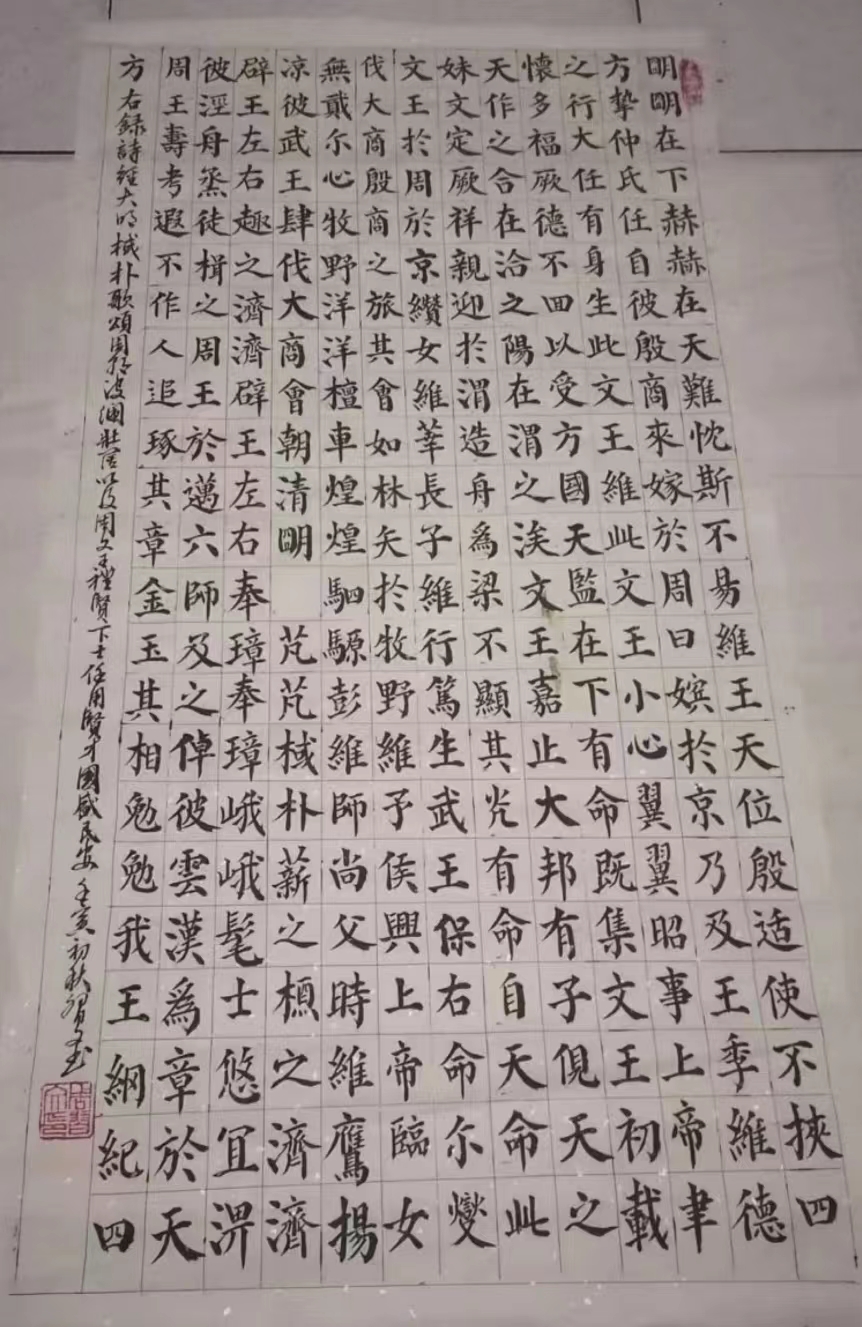 明明在下赫赫在天難忱斯不易維王天位殷适使不挾四
方摯仲氏任自彼殷商來嫁於周曰嬪於京乃及王季維德
之行大任有身生此文王維此文王小心翼翼昭事上帝聿
懷多福厥德不回以受方國天監在下有命既集文王初載
天作之合在洽之陽在渭之涘文王嘉止大邦有子俔天之
妹文定厥祥親迎於渭造舟為梁不顯其光有命自天命此
文王於周於京纘女維莘長子維行篤生武王保右命尔燮
伐大商殷商之旅其會如林矢於牧野維予侯興上帝臨女
無貳尔心牧野洋洋檀車煌煌駟騵彭維師尚父時維鷹揚
凉彼武王肆伐大商會朝清明 芃芃棫朴薪之槱之濟濟
辟王左右趣之濟濟辟王左右奉璋奉璋峨峨髦士悠宜淠
彼涇舟烝徒楫之周王於邁六師及之倬彼雲漢為章於天
周王壽考遐不作人追琢其章金玉其相勉勉我王綱紀四
方 右錄詩經大明棫朴歌頌周邦波瀾壯闊以及周文王禮賢下士任用賢才國盛民安 壬寅初秋